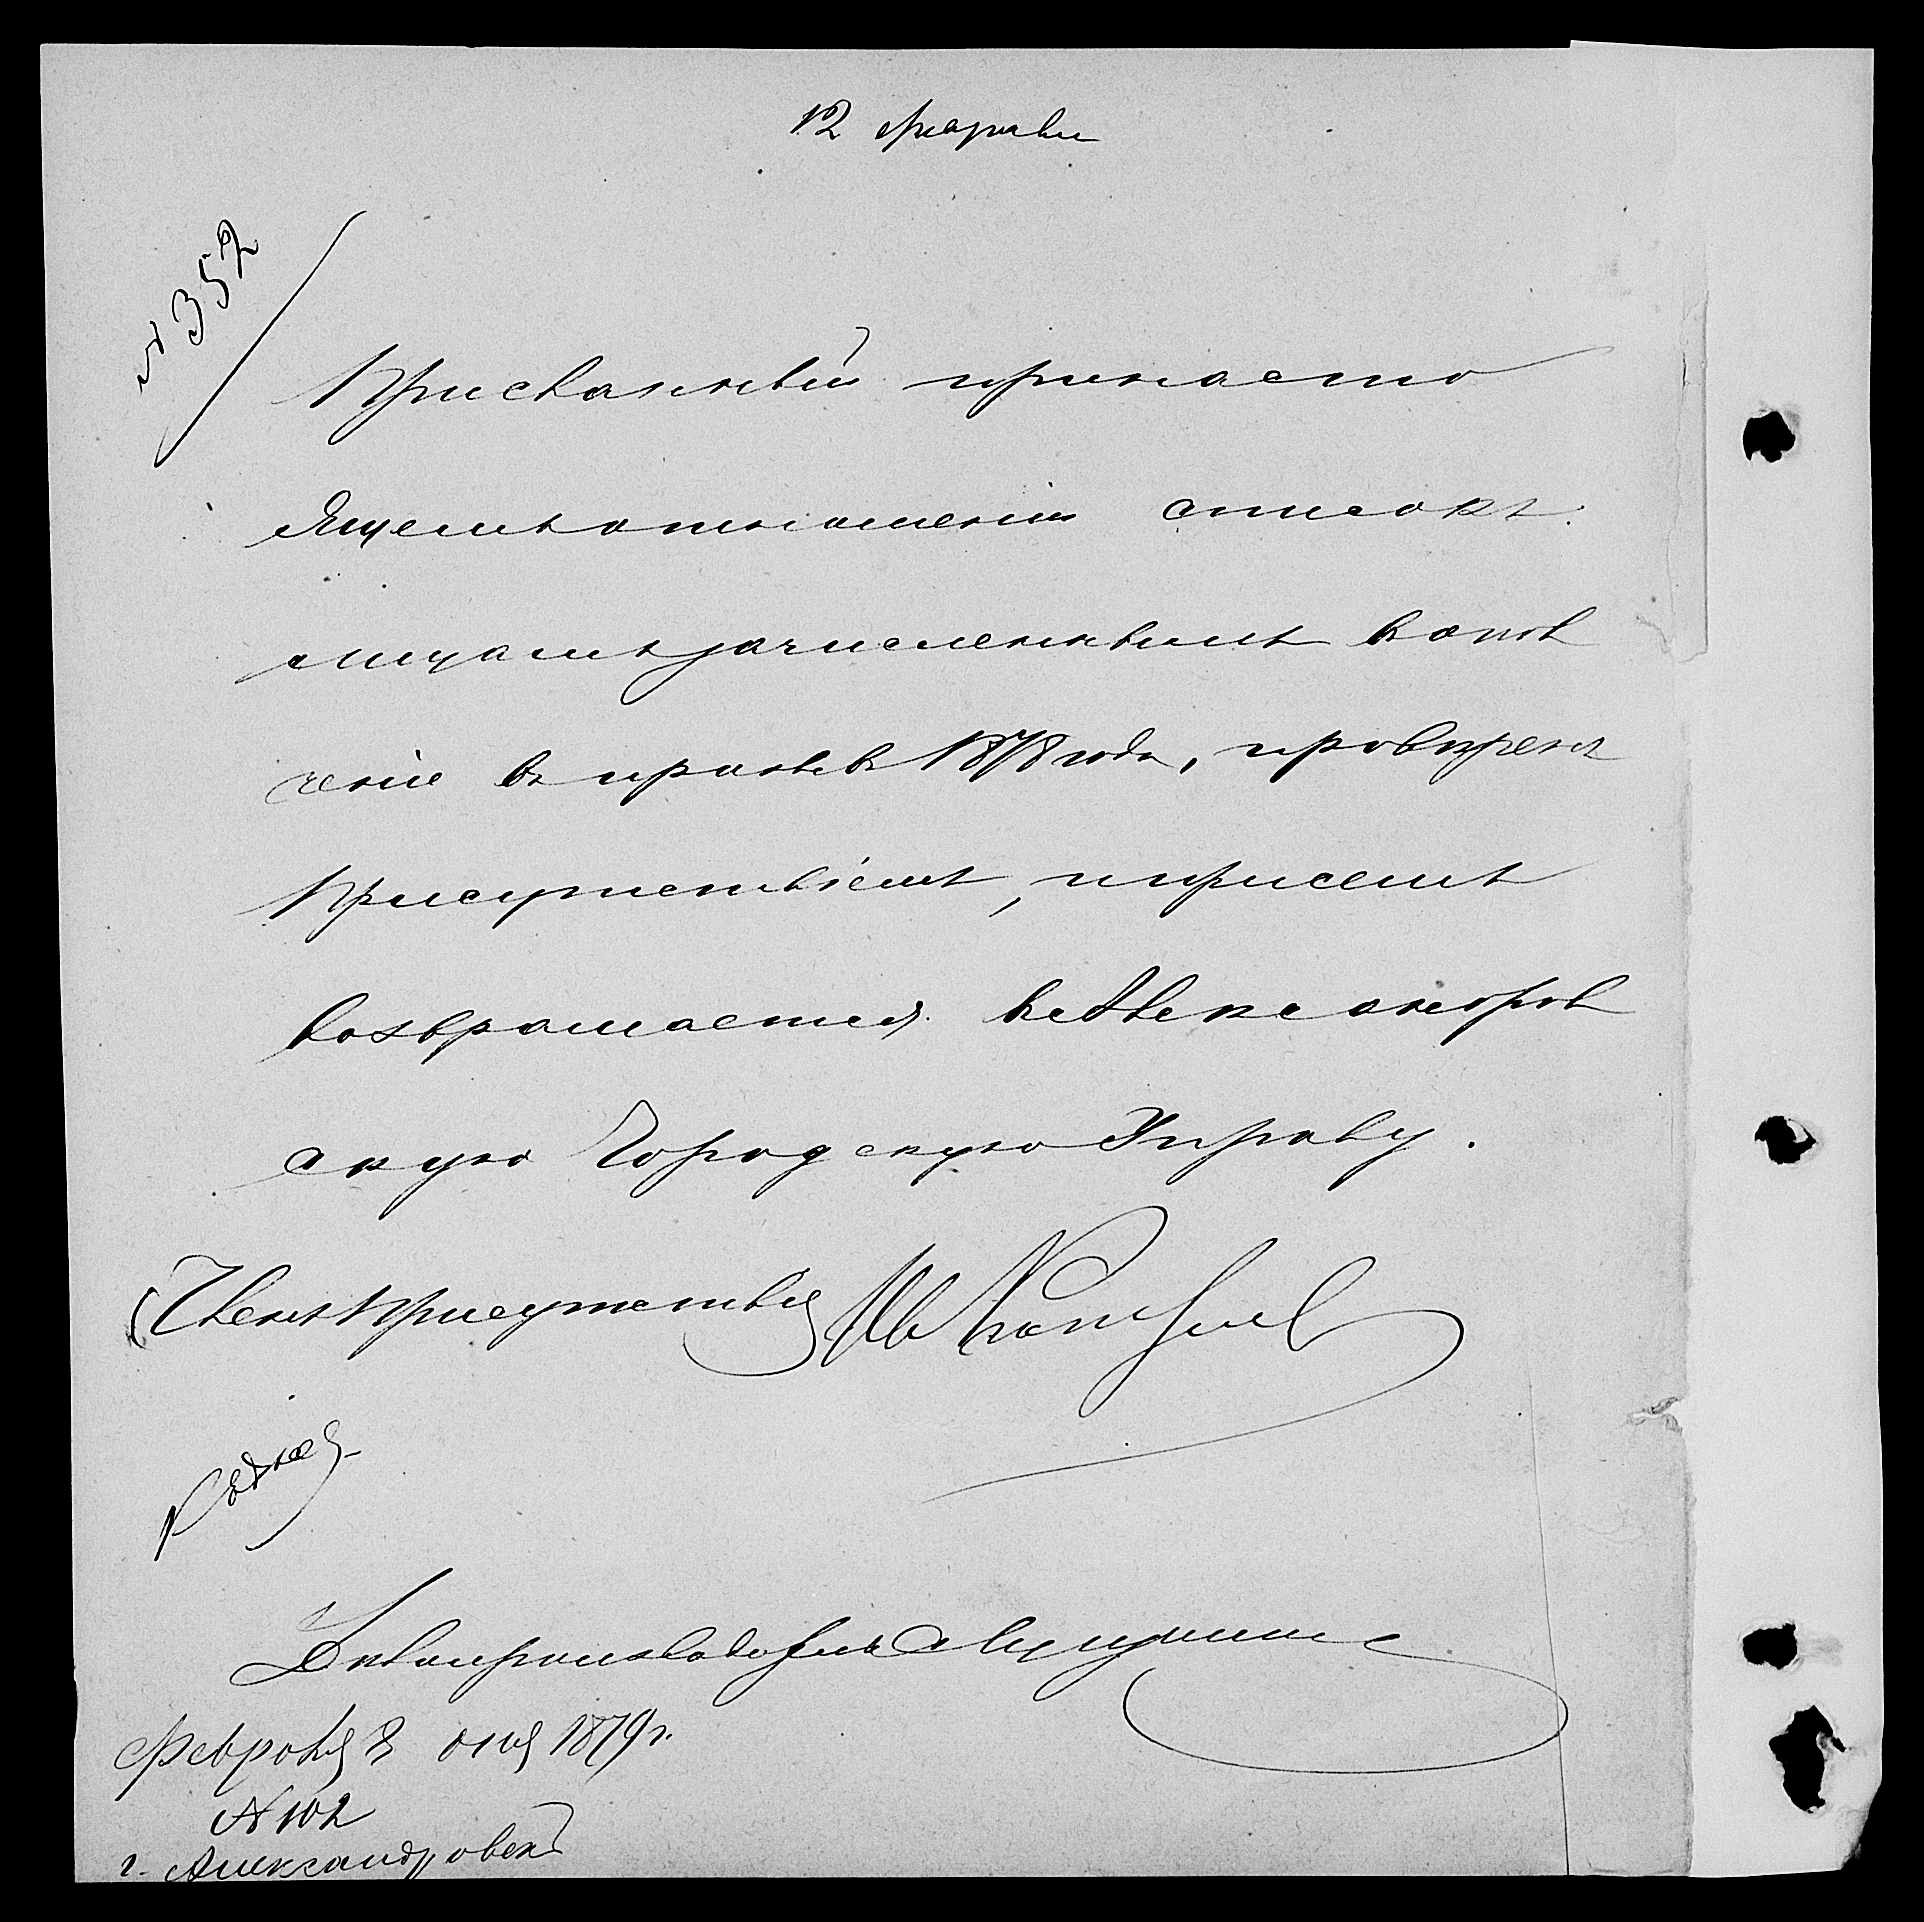 12 февраля
№ 352
Присланный при насто
ящемъ отношеніи списокъ
лицамъ зачисленнымъ въ опол
ченіе въ призывъ 1878 года, провѣренъ
Присутствіемъ, и при семъ
возвращается въ Александров
скую Городскую Управу.
Членъ Присутствія
Дѣлопроизводитель
Февраля 8 дня 1879 г.
№ 102
г. Александровскъ